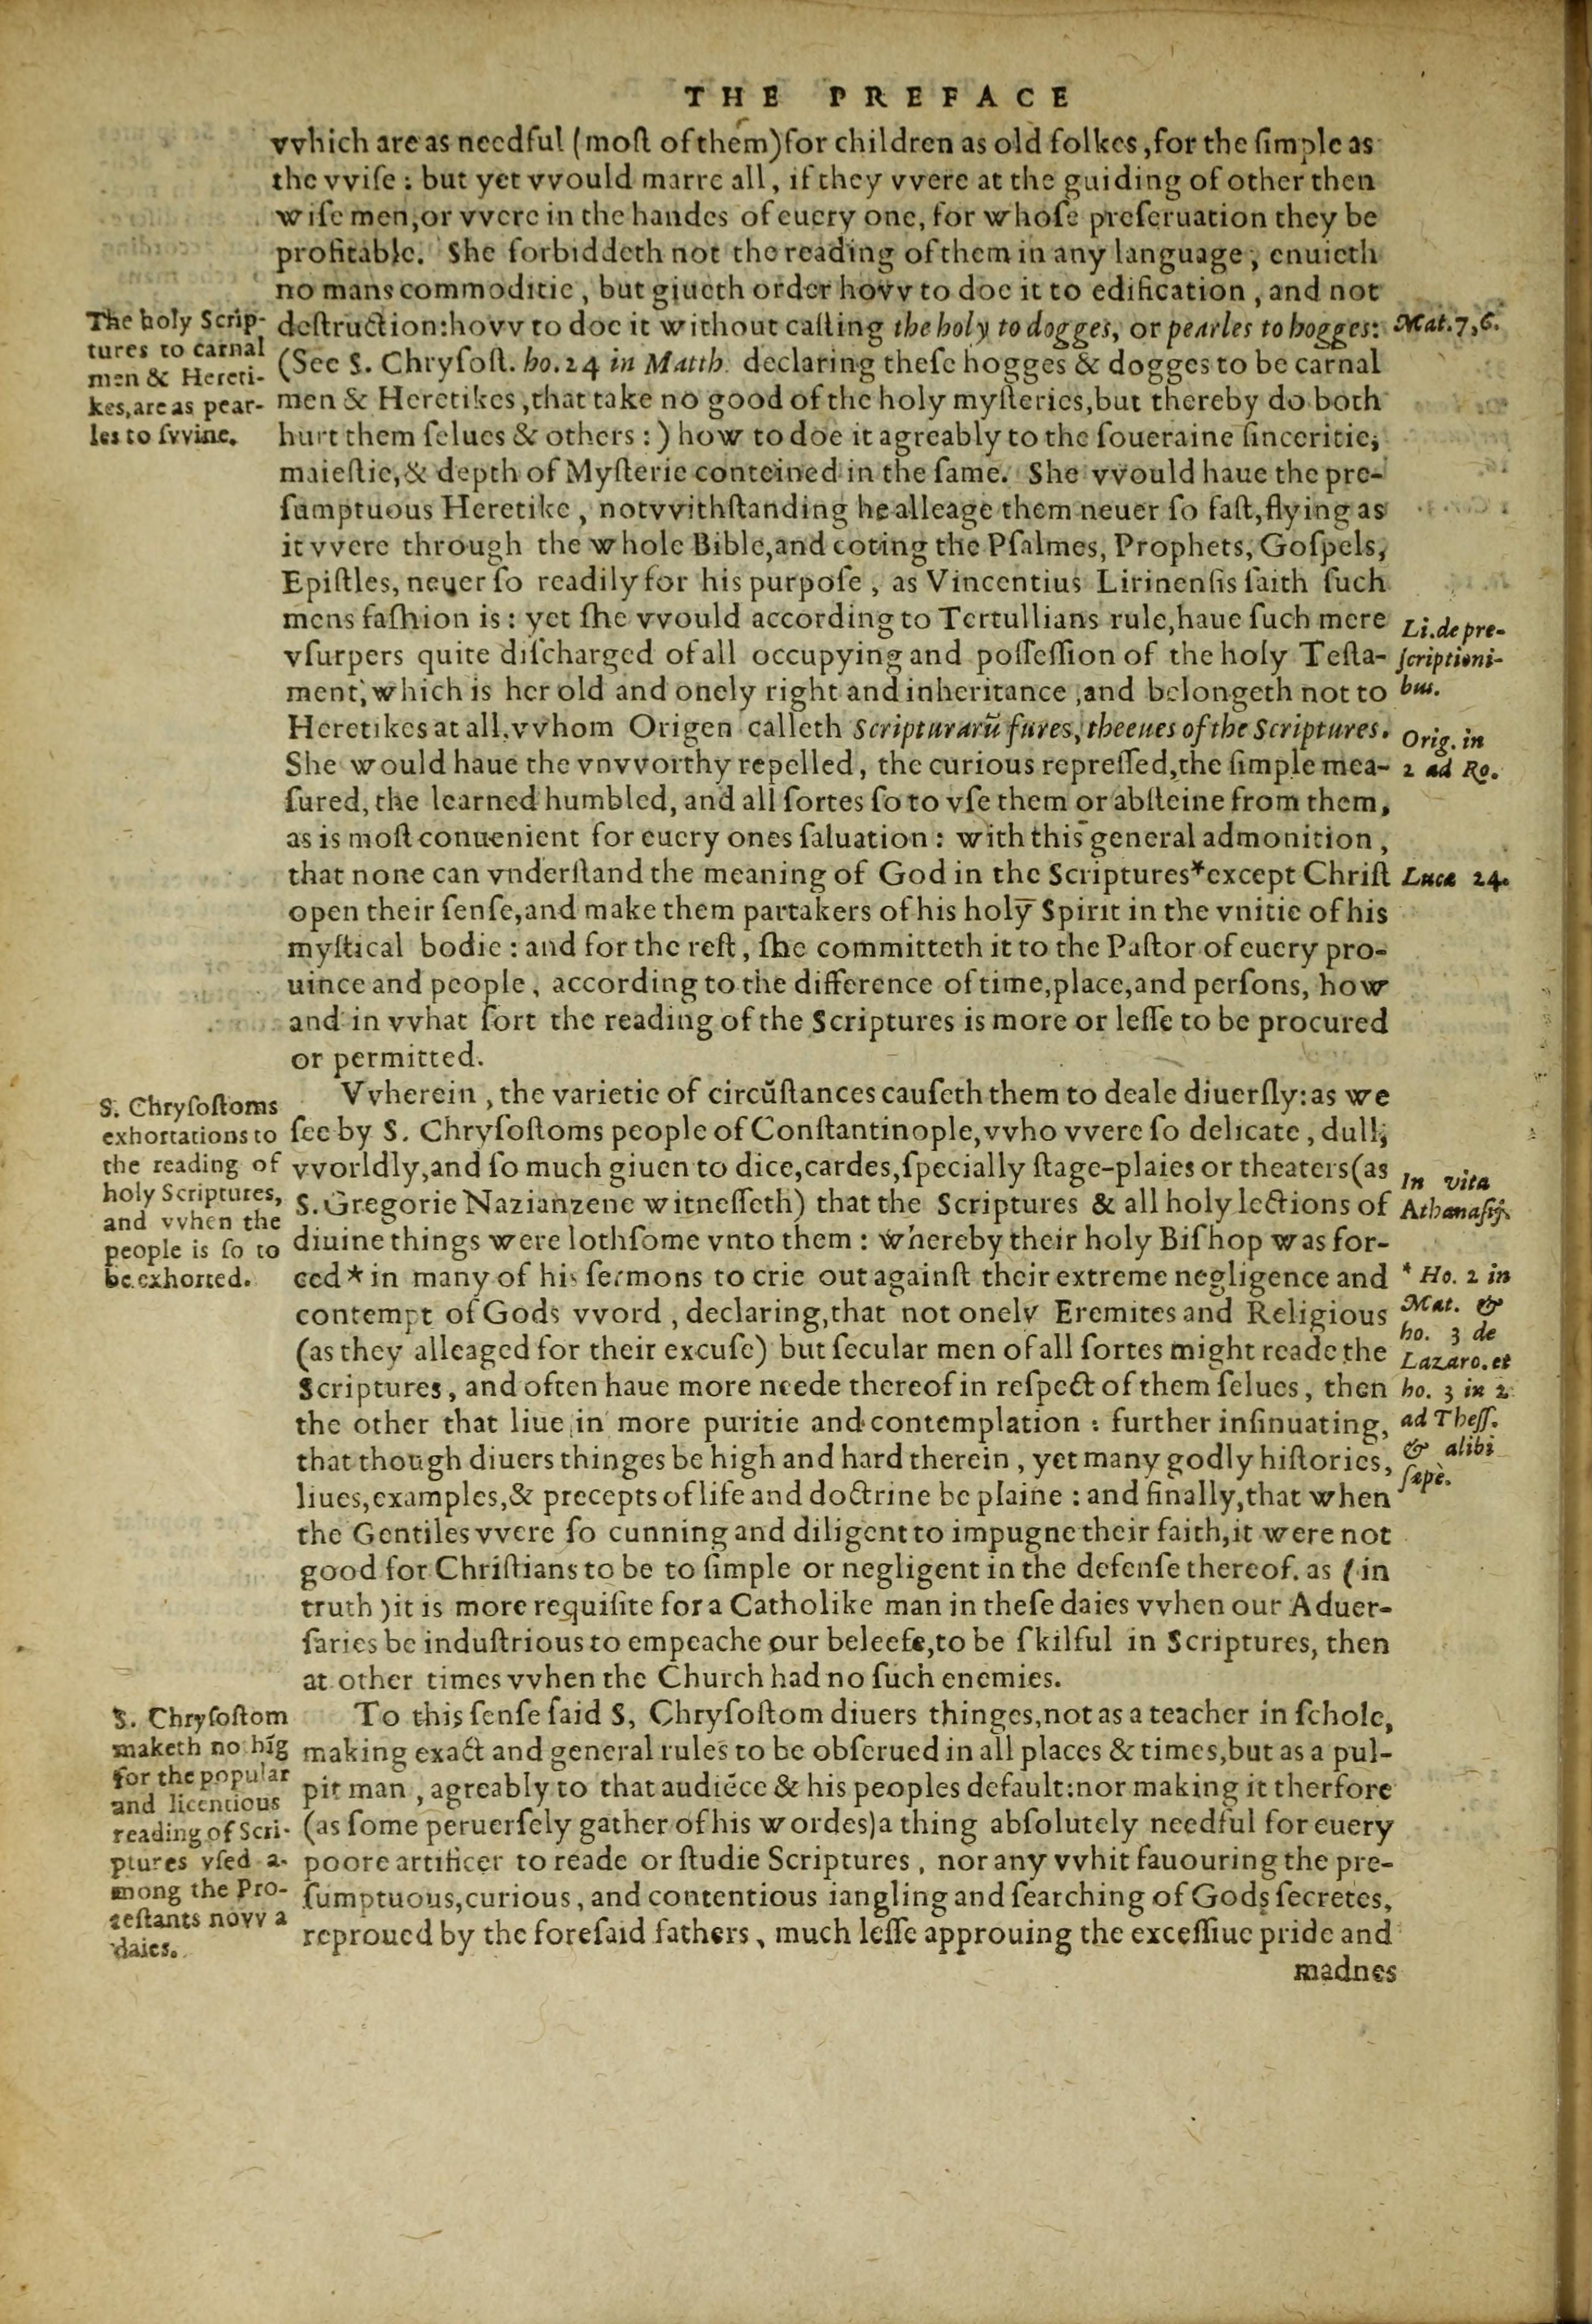 THE PREFACE
vvhich are as needful (moſt of them) for children as old folkes, for the ſimple as
the vviſe : but yet vvould marre all, if they vvere at the guiding of other then
wiſe men, or vvere in the handes of euery one, for whoſe preſeruation they be
profitable. She forbiddeth not the reading of them in any language, enuieth
no mans commoditie, but giueth order hovv to doe it to edification, and not
deſtruction: hovv to doe it without caſting the holy to dogges, or pearles to hogges:
(See S. Chryſoſt. ho. 24 in Matth. declaring theſe hogges & dogges to be carnal
men & Heretikes, that take no good of the holy myſteries, but thereby do both
hurt them ſelues & others :) how to doe it agreably to the ſoueraine ſinceritie,
maieſtie, & depth of Myſterie conteined in the ſame. She vvould haue the pre-
ſumptuous Heretike, notvvithſtanding he alleage them neuer ſo faſt, flying as
it vvere through the whole Bible, and coting the Pſalmes, Prophets, Goſpels,
Epiſtles, neuer ſo readily for his purpoſe, as Vincentius Lirinenſis ſaith ſuch
mens faſhion is : yet ſhe vvould according to Tertullians rule, haue ſuch mere
vſurpers quite diſcharged of all occupying and poſſeſſion of the holy Teſta-
ment, which is her old and onely right and inheritance, and belongeth not to
Heretikes at all, vvhom Origen calleth Scripturarũ fures, theeues of the Scriptures.
She would haue the vnvvorthy repelled, the curious repreſſed, the ſimple mea-
ſured, the learned humbled, and all ſortes ſo to vſe them or abſteine from them,
as is moſt conuenient for euery ones ſaluation : with this general admonition,
that none can vnderſtand the meaning of God in the Scriptures * except Chriſt
open their ſenſe, and make them partakers of his holy Spirit in the vnitie of his
myſtical bodie : and for the reſt, ſhe committeth it to the Paſtor of euery pro-
uince and people, according to the difference of time, place, and perſons, how
and in vvhat ſort the reading of the Scriptures is more or leſſe to be procured
or permitted.
Vvherein, the varietie of circũſtances cauſeth them to deale diuerſly: as we
ſee by S. Chryſoſtoms people of Conſtantinople, vvho vvere ſo delicate, dull,
vvorldly, and ſo much giuen to dice, cardes, ſpecially ſtage-plaies or theaters (as
S. Gregorie Nazianzene witneſſeth) that the Scriptures & all holy lections of
diuine things were lothſome vnto them : whereby their holy Biſhop was for-
ced * in many of his ſermons to crie out againſt their extreme negligence and
contempt of Gods vvord, declaring, that not onely Eremites and Religious
(as they alleaged for their excuſe) but ſecular men of all ſortes might reade the
Scriptures, and often haue more neede thereof in reſpect of them ſelues, then
the other that liue in more puritie and contemplation : further inſinuating,
that though diuers thinges be high and hard therein, yet many godly hiſtories,
liues, examples, & precepts of life and doctrine be plaine : and finally, that when
the Gentiles vvere ſo cunning and diligent to impugne their faith, it were not
good for Chriſtians to be to ſimple or negligent in the defenſe thereof. as (in
truth) it is more requiſite for a Catholike man in theſe daies vvhen our Aduer-
ſaries be induſtrious to empeache our beleefe, to be ſkilful in Scriptures, then
at other times vvhen the Church had no ſuch enemies.
To this ſenſe ſaid S, Chryſoſtom diuers thinges, not as a teacher in ſchole,
making exact and general rules to be obſerued in all places & times, but as a pul-
pit man, agreably to that audiẽce & his peoples default: nor making it therfore
(as ſome peruerſely gather of his wordes) a thing abſolutely needful for euery
poore artificer to reade or ſtudie Scriptures, nor any vvhit fauouring the pre-
ſumptuous, curious, and contentious iangling and ſearching of Gods ſecretes,
reproued by the foreſaid fathers, much leſſe approuing the exceſſiue pride and
madnes
The holy Scrip-
tures to carnal
men & Hereti-
kes, are as pear-
les to ſvvine.
S. Chryſoſtoms
exhortations to
the reading of
holy Scriptures,
and vvhen the
people is ſo to
be exhorted.
S. Chryſoſtom
maketh no hĩg
for the popular
and licentious
reading of Scri-
ptures vſed a-
mong the Pro-
teſtants novv a
daies.
Mat. 7, 6.
Li. de pre-
ſcriptioni-
bus.
Orig. in
2 ad Ro.
Luca 24.
In vita
Athanaſij.
* Ho. 2 in
Mat. &
ho. 3 de
Lazaro. et
ho. 3 in 2
ad Theſſ.
& alibi
ſæpè.